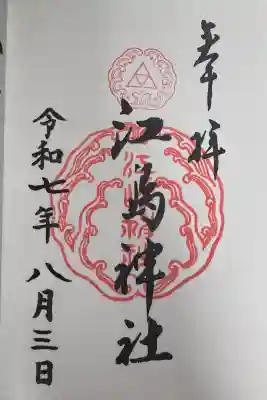 奉拝
江島神社
令和七年八月三日